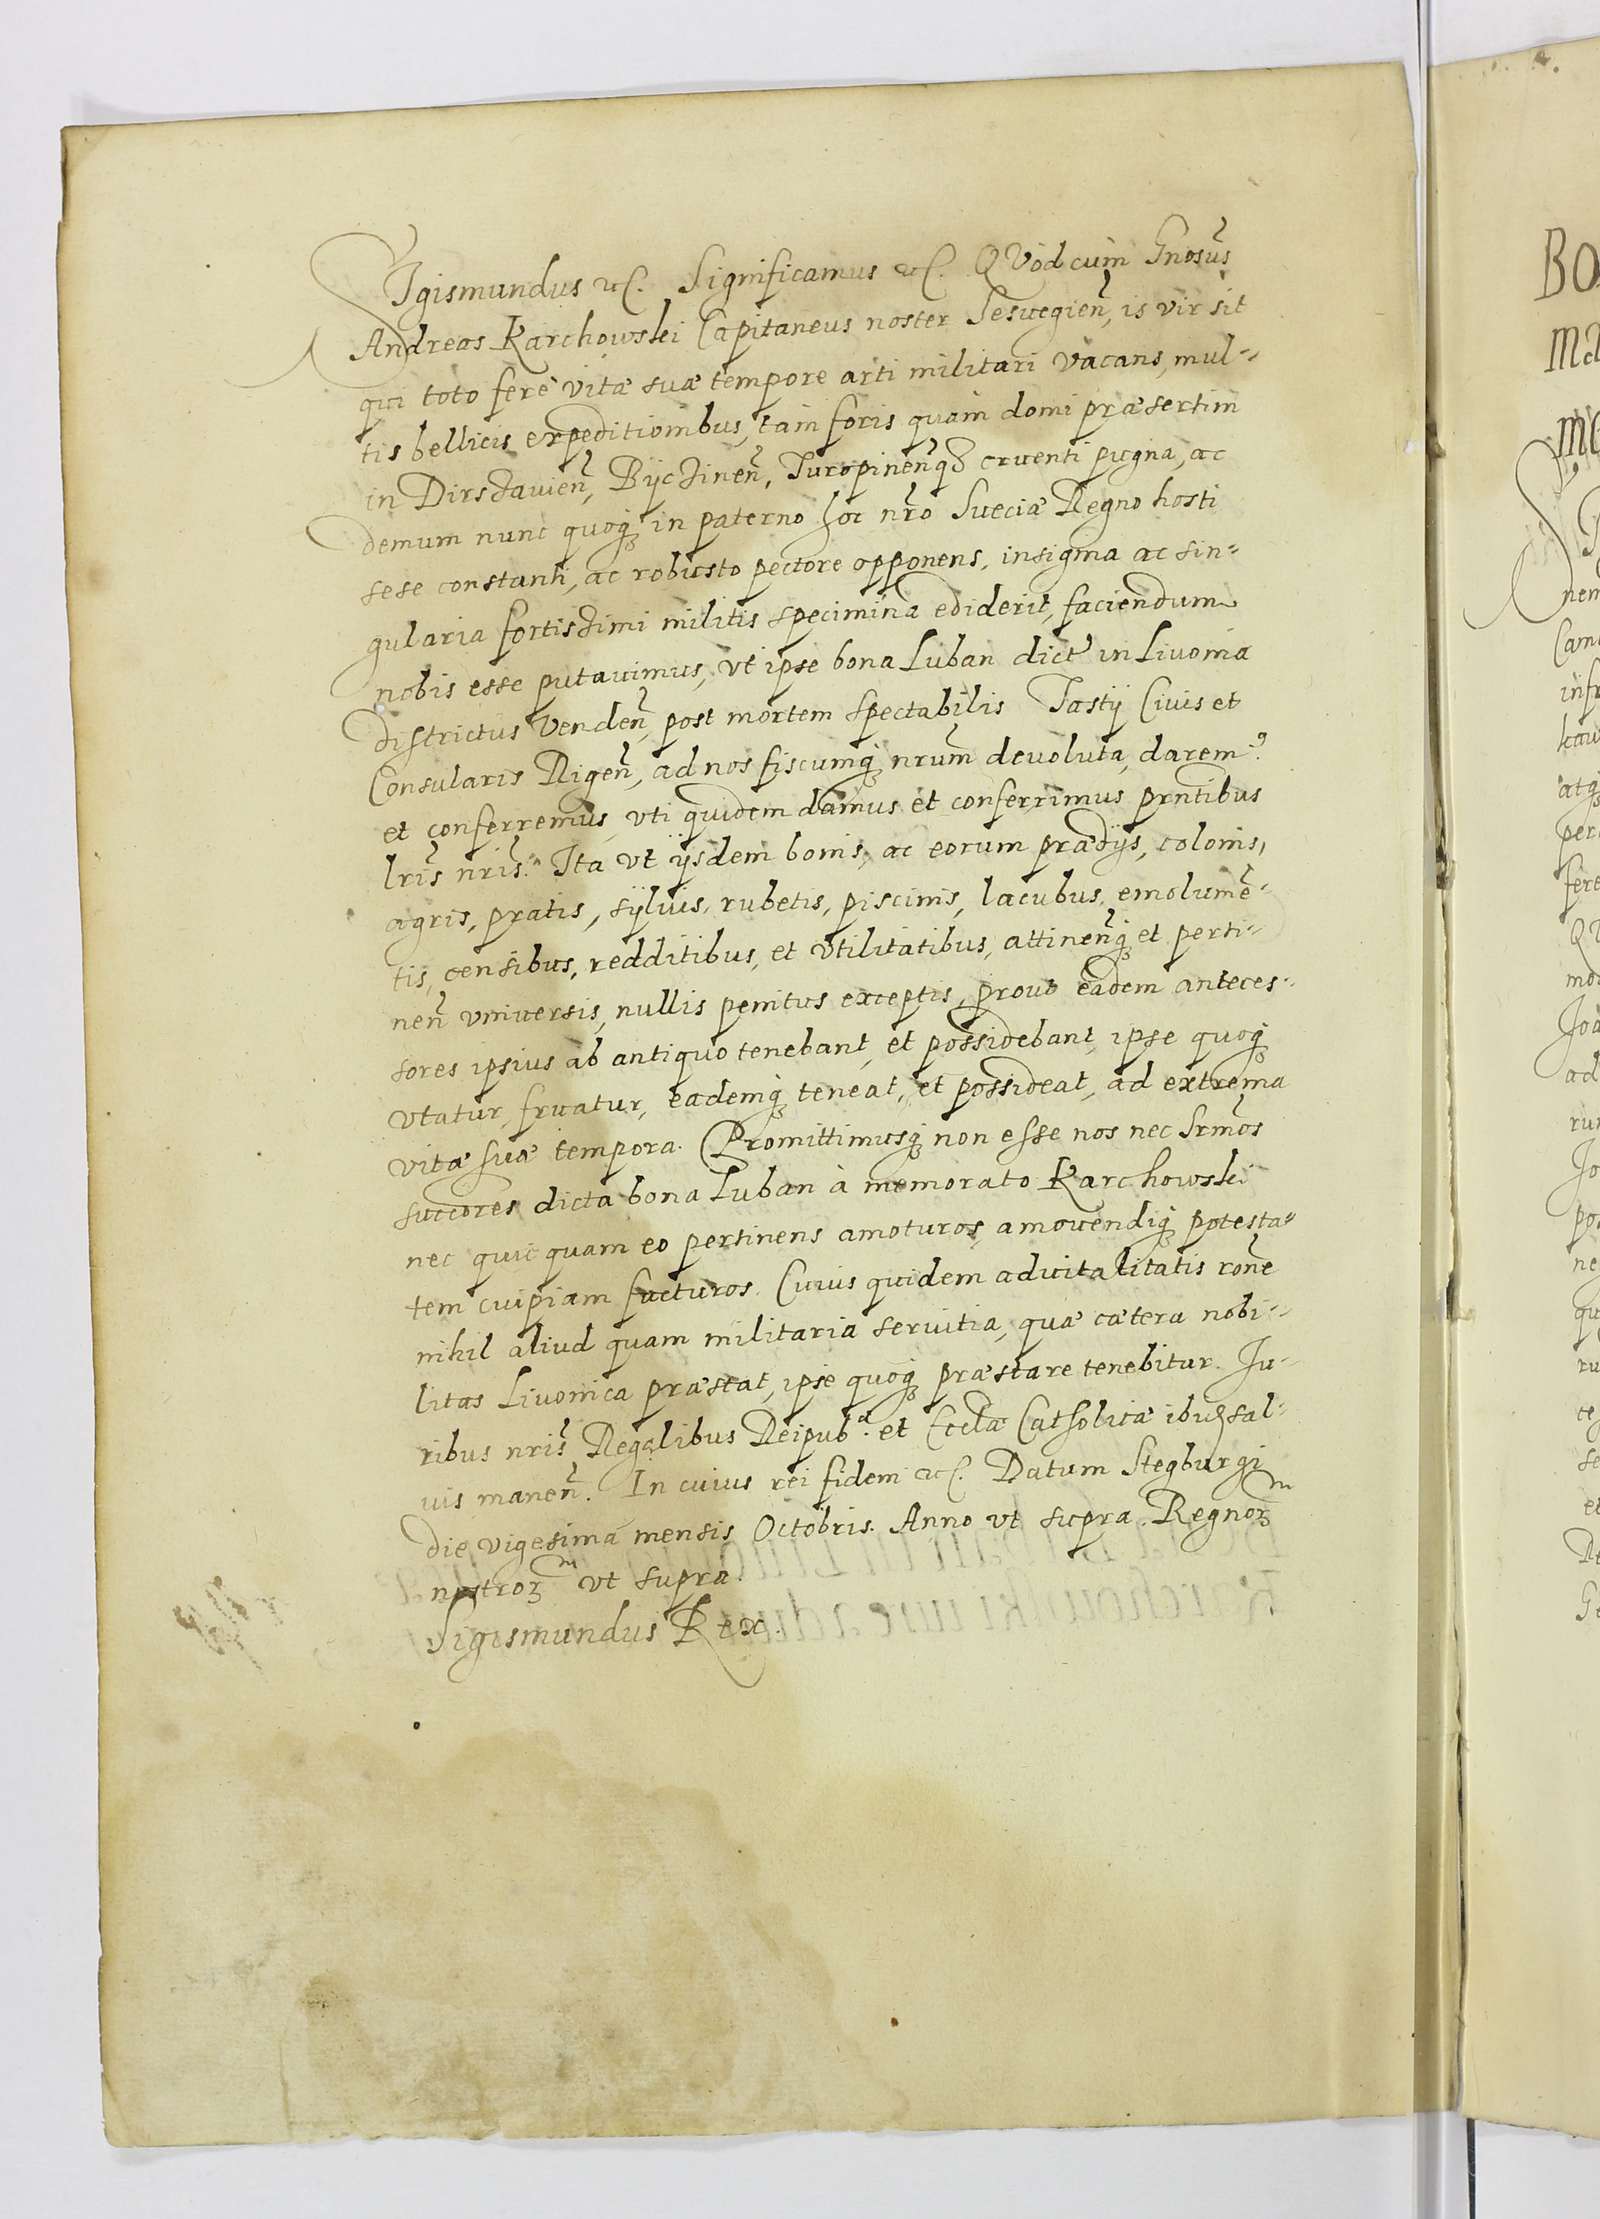 SIgismundus etc. Significamus etc. QVod cum Gnosus̃
Andreas Karchowski Capitaneus noster Seswegien̄, is vir sit
qui toto ferè vitæ suæ tempore arti militari vacans, mul-
tis bellicis expeditionibus, tàm foris quàm domi præsertim
in Dirsŧavien̄, Bÿctinen̄, Turopinen̄q̃ cruenti pugna, ac
demum nunc quoq̃ in paterno hoc nr̃o Sueciæ Regno hosti
sese constanti, ac robusto pectore opponens, insignia ac sin-
gularia fortissimi militis specimina ediderit, faciendum
nobis esse putavimus, vt ipse bona Luban dict̃ in Livonia
districtus Venden̄, post mortem spectabilis Tastÿ Civis et
Consularis Rigen̄, ad nos fiscumq̃ nrum̃ devoluta, darem⁹
et conferremus, vti quidem damus et conferrimus prñtibus
lris̃ nris̃. Ita vt ÿsdem bonis, ac eorum prædÿs, colonis,
agris, pratis, sÿlvis, rubetis, piscinis, lacubus, emolumẽ-
tis, censibus, redditibus, et vtilitatibus, attinen̄q̃ et perti-
nen̄ vniversis, nullis penitus exceptis, prout eadem anteces-
sores ipsius ab antiquo tenebant, et possidebant, ipse quoq̃
vtatur, fruatur, eademq̃ teneat, et possideat, ad extrema
vitæ suæ tempora. Promittimusq̃ non esse nos nec Srm̃os
succores dicta bona Luban à memorato Karchowski
nec quicquam eo pertinens amoturos, amovendiq̃ potesta-
tem cuipiam facturos. Cuius quidem advitalitatis rõne
nihil aliud quam militaria servitia, quæ cætera nobi-
litas Livonica præstat, ipse quoq̃ præstare tenebitur. Iu-
ribus nris̃ Regalibus Reipub.ᵃ et Eccłæ Catholicæ ibid sal-
vis manen̄. In cuius rei fidem etc. Datum Stegburgi
die vigesima mensis Octobris. Anno vt supra. Regnorᵐ
nostrorᵐ vt supra.
Sigismundus Rex.